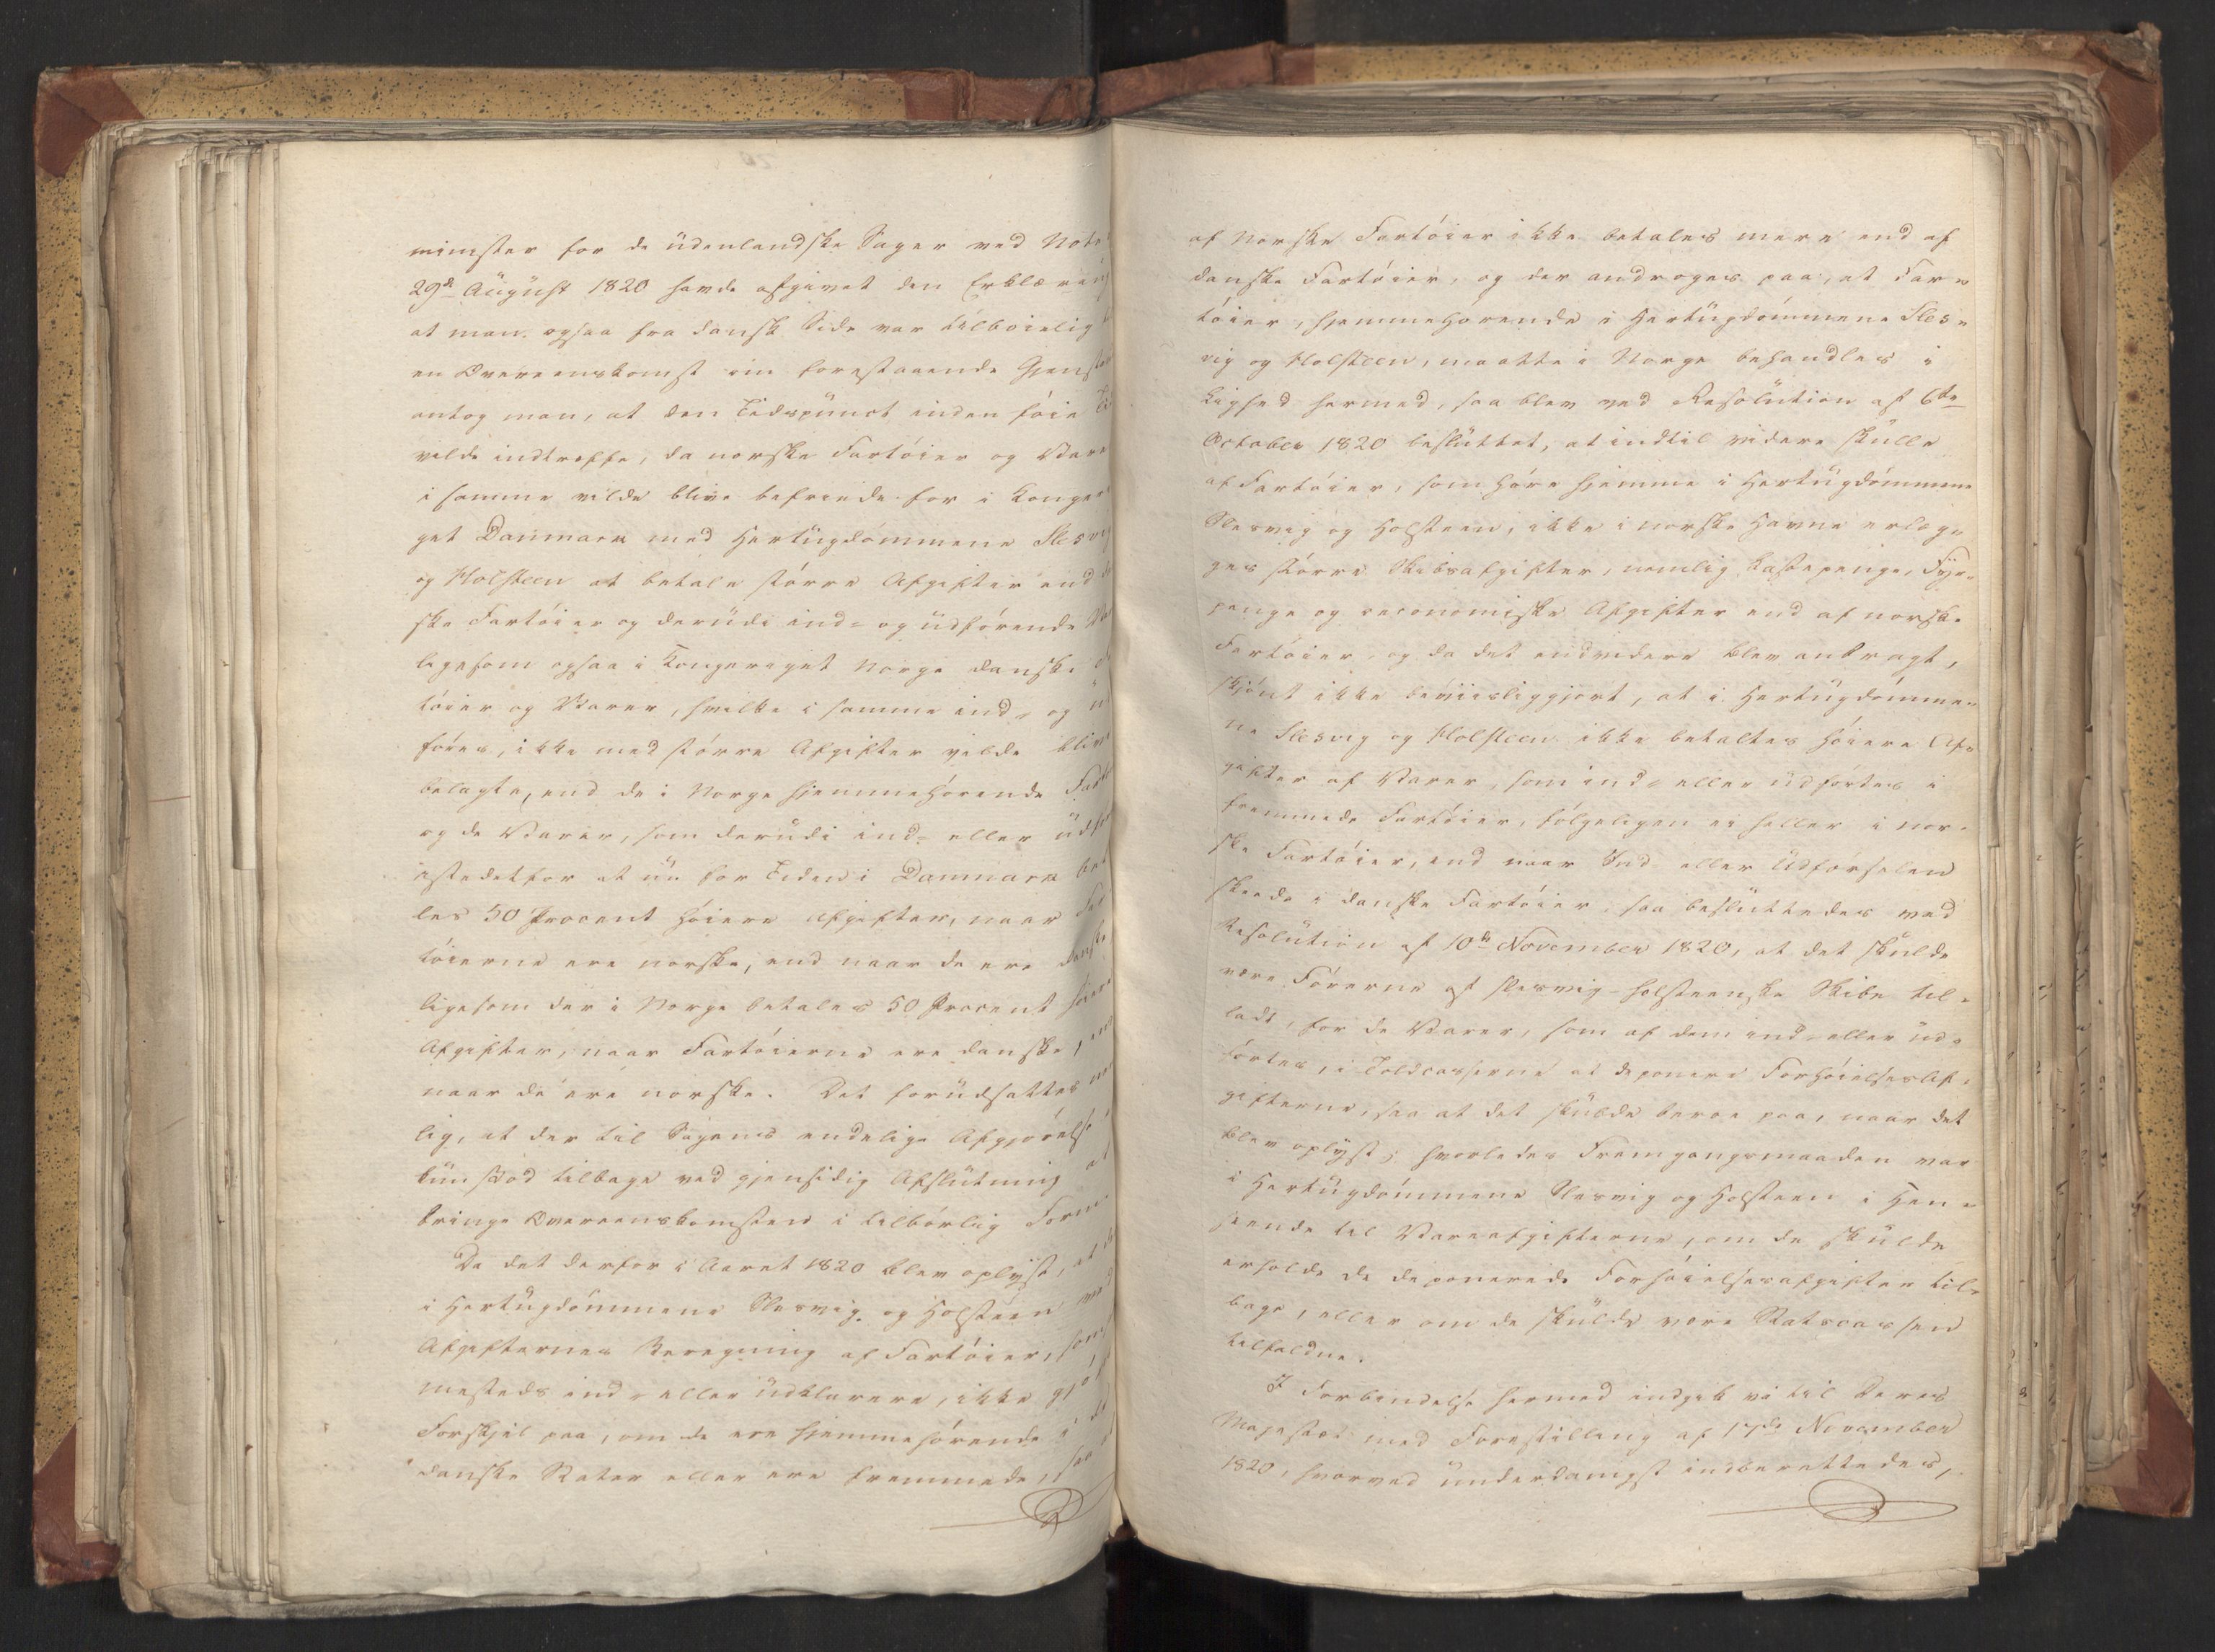 minister for de udenlandske Sager ved Note
29de August 1820 havde afgivet den Erklæring
at man ogsaa fra dansk Side var tilbøielig
en Overeenskomst om forestaaende Gjenst
antog man, at den Tidspunct inden føie Ti
vilde indtræffe, da norske Fartøier og Vare
i samme vilde blive befriede for i Konge
get Danmark med Hertugdømmene Slesvig
og Holsteen at betale større Afgifter end
ske Fartøier og derudi ind- og udførende
ligesom ogsaa i Kongeriget Norge danske
tøier og Varer, hvilke i samme ind- og
føres, ikke med større Afgifter vilde blive
belagte, end de i Norge hjemmehørende Fart
og de Varer, som derudi ind- eller udfø
istedetfor at nu for Tiden i Danmark bet
les 50 Procent høiere Afgifter, naar
tøierne ere norske, end naar de ere danske
ligesom der i Norge betales 50 Procent høiere
Afgifter, naar Fartøierne ere danske, end
naar de ere norske. Det forudsattes
lig, at der til Sagens endelige Afgjørelse
kun stod tilbage ved gjensidig Afslutning at
bringe Overeenskomsten i tilbørlig Form
Da det derfor i Aaret 1820 blev oplyst, at
i Hertugdømmene Slesvig og Holsteen ved
Afgifternes Beregning af Fartøier, som
mesteds ind- eller udklarere, ikke gjø
Forskjel paa, om de ere hjemmehørende i de
danske Stater eller ere fremmede, saa at
af norske Fartøier ikke betales mere end af
danske Fartøier, og der androges paa, at Far-
tøier, hjemmehørende i Hertugdømmene Sles-
vig og Holsteen, maatte i Norge behandles i
Lighed hermed, saa blev ved Resolution af 6te
October 1820 besluttet, at indtil videre skulle
af Fartøier, som høre hjemme i Hertugdømmene
Slesvig og Holsteen, ikke i norske Havne erlæg-
ges større Skibsafgifter, nemlig Lastepenge, Fyr-
penge og oeconomiske Afgifter end af norske
Fartøier, og da det endvidere blev anbragt,
skjønt ikke beviisliggjort, at i Hertugdømme-
ne Slesvig og Holsteen ikke betaltes høiere Af-
gifter af Varer, som ind- eller udførtes i
fremmede Fartøier, følgeligen ei heller i nor-
ske Fartøier, end naar Ind- eller Udførselen
skeede i danske Fartøier, saa besluttedes ved
Resolution af 10de November 1820, at det skulde
være Førerne af slesvig-holsteenske Skibe til-
ladt, for de Varer, som af dem ind- eller ud-
førtes, i Toldcasserne at deponere Forhøielses Af-
gifterne, saa at det skulde beroe paa, naar det
blev oplyst, hvorledes Fremgangsmaaden var
i Hertugdømmene Slesvig og Holsteen i Hen-
seende til Vareafgifterne, om de skulde
erholde de deponerede Forhøielsesafgifter til-
bage, eller om de skulde være Statscassen
tilfaldne.
I Forbindelse hermed indgik vi til Deres
Majestæt med Forestilling af 17de November
1820, hvorved underdanigst indberettedes,